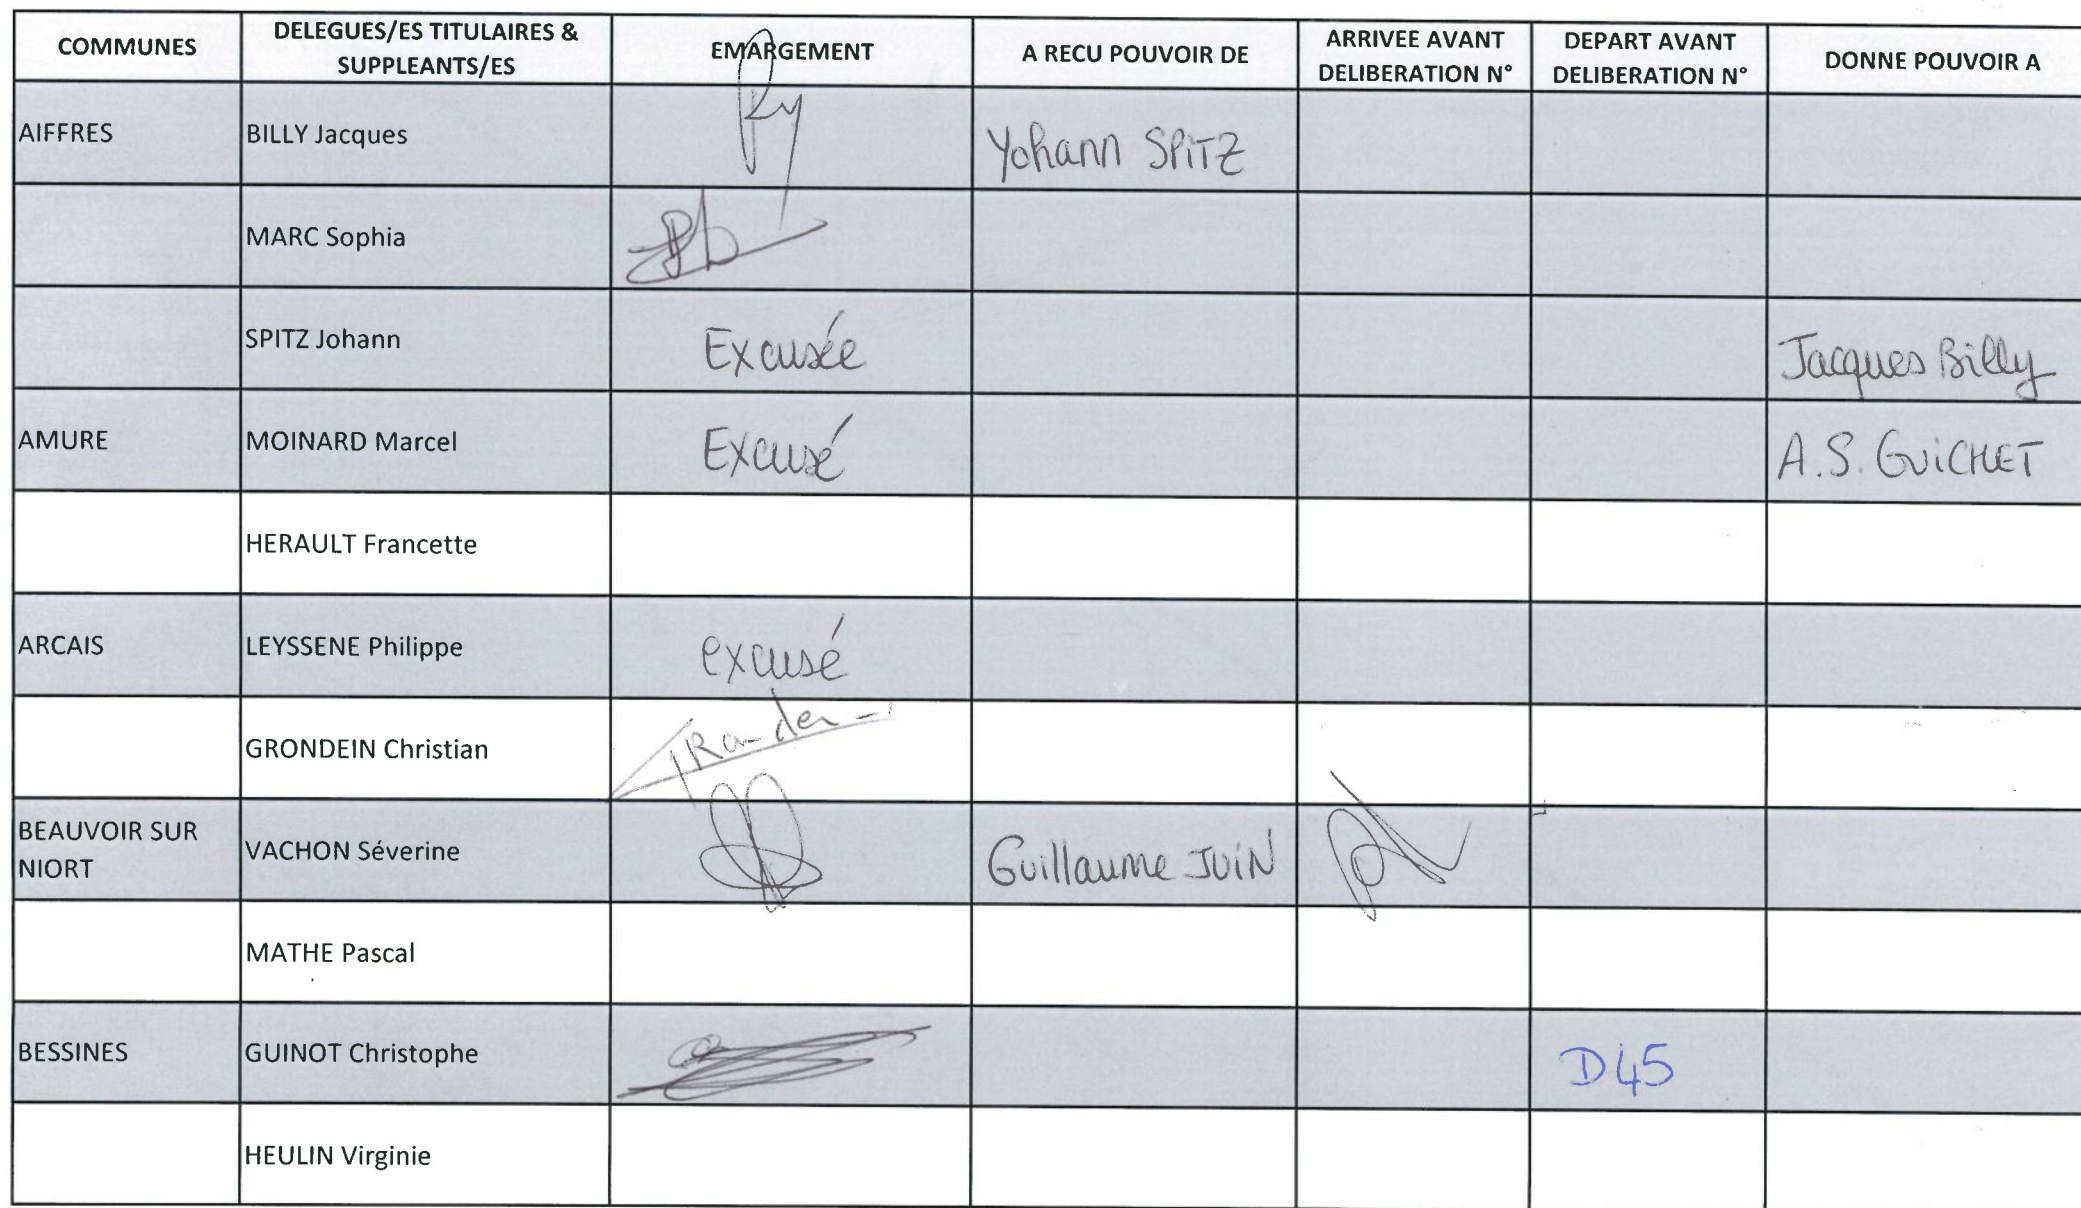 COMMUNES DELEGUES/ES TITULAIRES & SUPPLEANTS/ES EMARGEMENT A RECU POUVOIR DE ARRIVEE AVANT DELIBERATION N° DEPART AVANT DELIBERATION N° DONNE POUVOIR A
AIFFRES BILLY Jacques Yohann SPITZ
MARC Sophia
SPITZ Johann Excusée Jacques Billy
AMURE MOINARD Marcel Excusé A.S. GUICHET
HERAULT Francette
ARCAIS LEYSSENE Philippe excusé
GRONDEIN Christian
BEAUVOIR SUR NIORT VACHON Séverine Guillaume JUIN
MATHE Pascal
BESSINES GUINOT Christophe D45
HEULIN Virginie